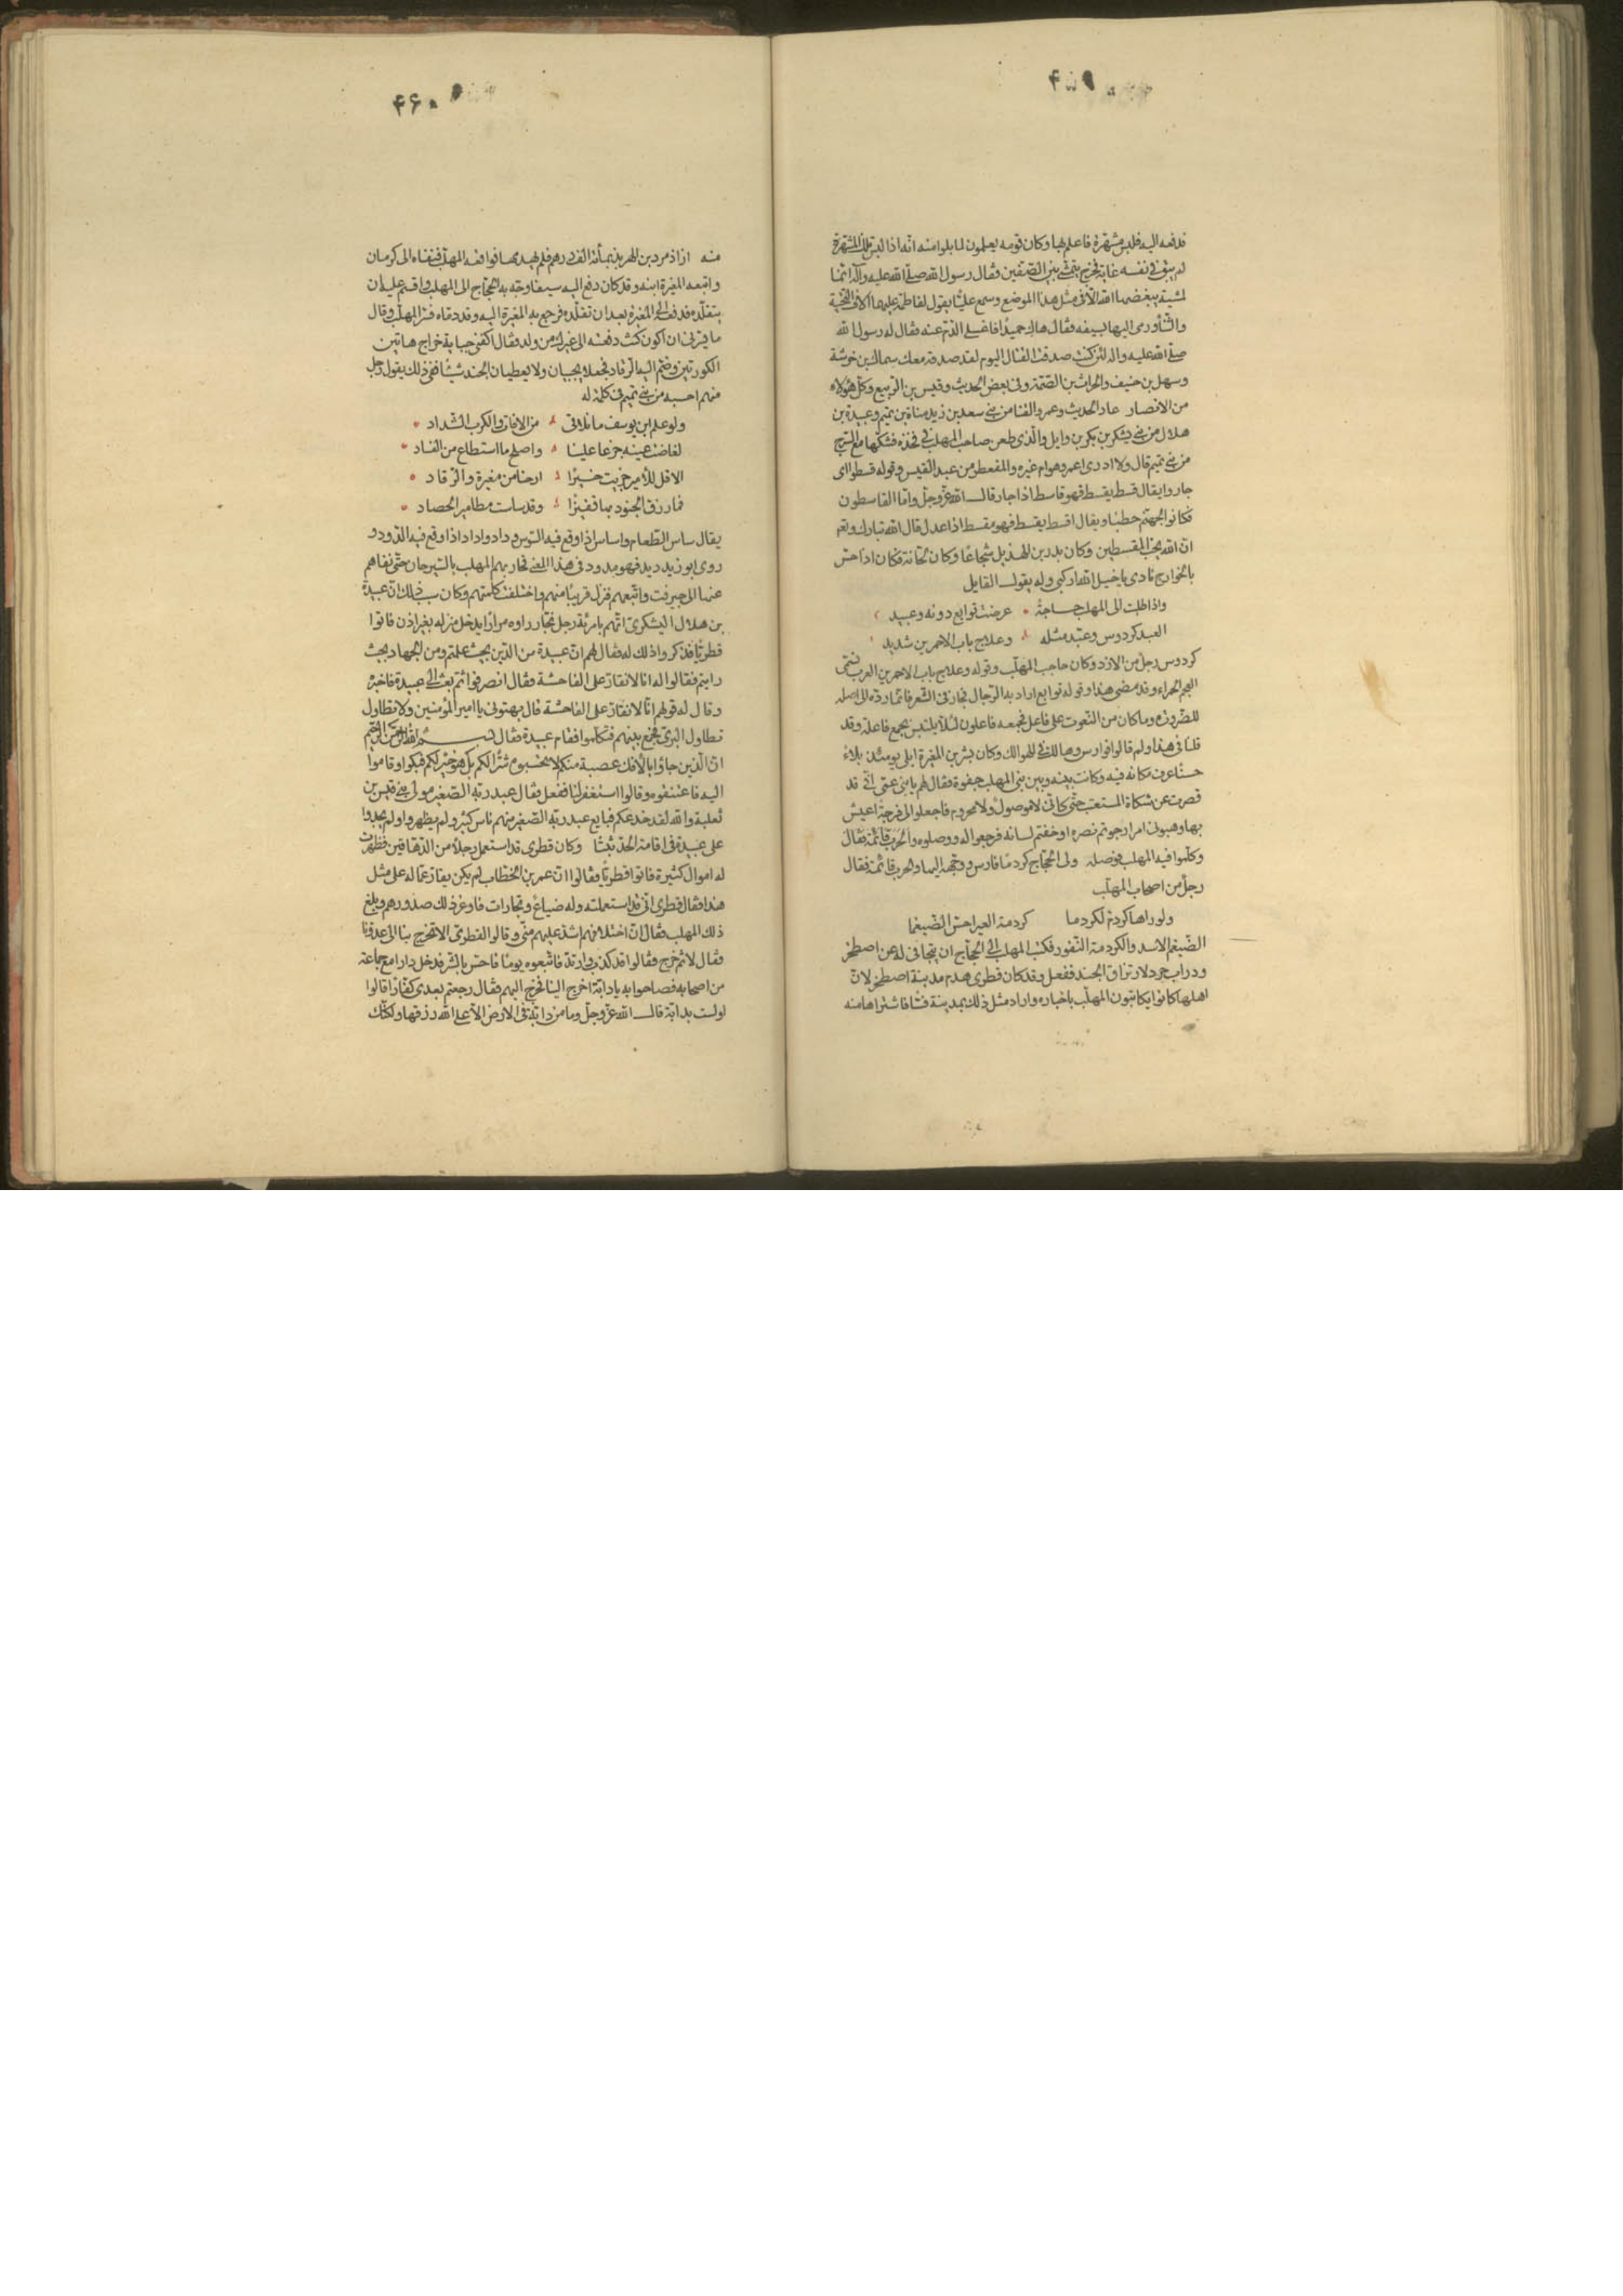 ۴۵۹
فدفعه اليه فلبس مشهرة فاعلم بها وكان قومه يعلمون لما بلوا منه انه اذا لبس تلك المشهرة
لم يبق في نفسه غاية فخرج يمشي بين الصفين فقال رسول الله صلى الله عليه وآله انها
لمشية يبغضها الله الا في مثل هذا الموضع وسمع عليّا يقول لفاطمة عليهما السلام
ورمى اليها بسيفه فقال هاك حميدًا فاغسلي الدم عنه فقال له رسول الله
صلى الله عليه واله لئن كنت صدقت القتال اليوم لقد صدقه معك سماك بن خرشة
وسهل بن حنيف والحارث بن الصمة وفي بعض الحديث وقيس بن الربيع وكل هؤلاء
من الانصار عاد الحديث وعمرو القنا من بني سعد بن زيد مناة بن تميم وعبيدة بن
هلال من بني يشكر بن بكر بن وايل والذي طعن صاحب المهلب في فخذه فشكها مع السرج
من بني تميم قال ولا ادري اعمرو هو ام غيره والمقعطر من عبد القيس وقوله قسطوا اى
جاروا يقال قسط يقسط فهو قاسط اذا جار قال الله عز وجل واما القاسطون
فكانوا لجهنم حطبا ويقال اقسط يقسط فهو مقسط اذا عدل قال الله تبارك وتعالى
ان الله يحب المقسطين وكان بدر بن الهذيل شجاعًا وكان لحانة فكان اذا حس
بالخوارج نادى يا خيل الله اركبي وله يقول القايل
واذا طلبت الى المهلب حاجة عرضت توابع دونه وعبيد
العبد كردوس وعبد مثله وعلاج باب الاحمرين شديد
كردوس رجل من الازد وكان حاجب المهلب وقوله وعلاج باب الاحمرين العرب تسمى
العجم الحمراء وقد مضى هذا وقوله توابع اراد به الرجال فجاز في الشعر فانما رده الى اصله
للضرورة وما كان من النعوت على فاعل فجمعه فاعلون لئلا يلتبس بجمع فاعلة وقد
قلنا في هذا ولم قالوا فوارس وهالك في الهوالك وكان بشر بن المغيرة ابلى يومئذ بلاء
حسنًا عرف مكانه فيه وكانت بينه وبين بني المهلب جفوة فقال لهم يا بني عمي اني قد
قصرت عن شكاة المستعتب حتى كاني لا موصول ولا محروم فاجعلوا لي فرجة اعيش
بها وهبوني امرا رجوتم نصره او خفتم لسانه فرجعوا له ووصلوه
وكلموا فيه المهلب فوصله وولى الحجاج كردما فارس ووجهه اليها والحرب قائمة فقال
رجل من اصحاب المهلب
ولو راها كردم لكردما كردمة العير احس الضيغما
الضيغم الاسد والكردمة النفور فكتب المهلب الى الحجاج ان يتجافى له عن اصطخر
ودراب جرد لارزاق الجند ففعل وقد كان قطري هدم مدينة اصطخر لان
اهلها كانوا يكاتبون المهلب باخباره واراد مثل ذلك بمدينة فسا فاشتراها منه
۴۶۰
منه ازاذمرد بن الهربذ بمائة الف درهم فلم يهدمها فوافقه المهلب فنفاه الى كرمان
واتبعه المغيرة ابنه وقد كان دفع اليه سيفا وجه به الحجاج الى المهلب واقسم عليه ان
يتقلده فدفعه الى المغيرة بعد ان تقلده فرجع به المغيرة اليه وقد دماه فسر المهلب وقال
ما يسرني ان اكون كنت دفعته الى غيرك من ولدي فقال اكفني جباية خراج هاتين
الكورتين وضم اليه الرقاد فجعلا يجبيان ولا يعطيان الجند شيئًا ففي ذلك يقول رجل
منهم احسبه من بني تميم في كلمة له
ولو علم ابن يوسف ما نلاقي من الافات والكرب الشداد
لفاضت عينه جزعا علينا واصلح ما استطاع من الفساد
الا قل للامير جزيت خيرًا ارحنا من مغيرة والرقاد
فما رزق الجنود بها قفيزًا وقد ساست مطامير الحصاد
يقال ساس الطعام واساس اذا وقع فيه السوس وداد واداد اذا وقع فيه الدود و
روى ابو زيد ديد فهو مدود في هذا المعنى فحاربهم المهلب بالسيرجان حتى نفاهم
عنها الى جيرفت واتبعهم فنزل قريبًا منهم واختلفت كلمتهم وكان سبب ذلك ان عبيدة
بن هلال اليشكري اتهم بامرأة رجل نجار راوه مرارًا يدخل منزله بغير اذن فاتوا
قطريّا فذكروا ذلك له فقال لهم ان عبيدة من الدين بحيث علمتم ومن الجهاد بحيث
رايتم فقالوا له انا لا نقار على الفاحشة فقال انصرفوا ثم بعث الى عبيدة فاخبره
وقال له قولهم انا لا نقار على الفاحشة قال بهتوني يا امير المؤمنين ولا تطاول
تطاول البري فجمع بينهم فتكلموا فقام عبيدة فقال بسم الله الرحمن الرحيم
ان الذين جاؤا بالافك عصبة منكم لا تحسبوه شرًا لكم بل هو خير لكم فبكوا وقاموا
اليه فاعتنقوه وقالوا استغفر لنا ففعل فقال عبد ربه الصغير مولى بني قيس بن
ثعلبة والله لقد خدعكم فبايع عبد ربه الصغير منهم ناس كثير ولم يظهروا ولم يجدوا
على عبيدة في اقامة الحد ثبتًا وكان قطري قد استعمل رجلا من الدهاقين فظهرت
له اموال كثيرة فاتوا قطريّا وقالوا ان عمر بن الخطاب لم يكن يقار عماله على مثل
هذا فقال قطري اني قد استعملته وله ضياع وتجارات فاوغر ذلك صدورهم وبلغ
ذلك المهلب فقال ان اختلافهم اشد عليهم مني وقالوا لقطري الا تخرج بنا الى عدونا
فقال لا ثم خرج فقالوا قد كذب وارتد فاتبعوه يومًا فاحس بالشر فدخل دارا مع جماعة
من اصحابه فصاحوا به يا دابة اخرج الينا فخرج اليهم فقال رجعتم بعدي كفارًا قالوا
اولست بدابة قال الله عز وجل وما من دابة في الارض الا على الله رزقها ولكنك